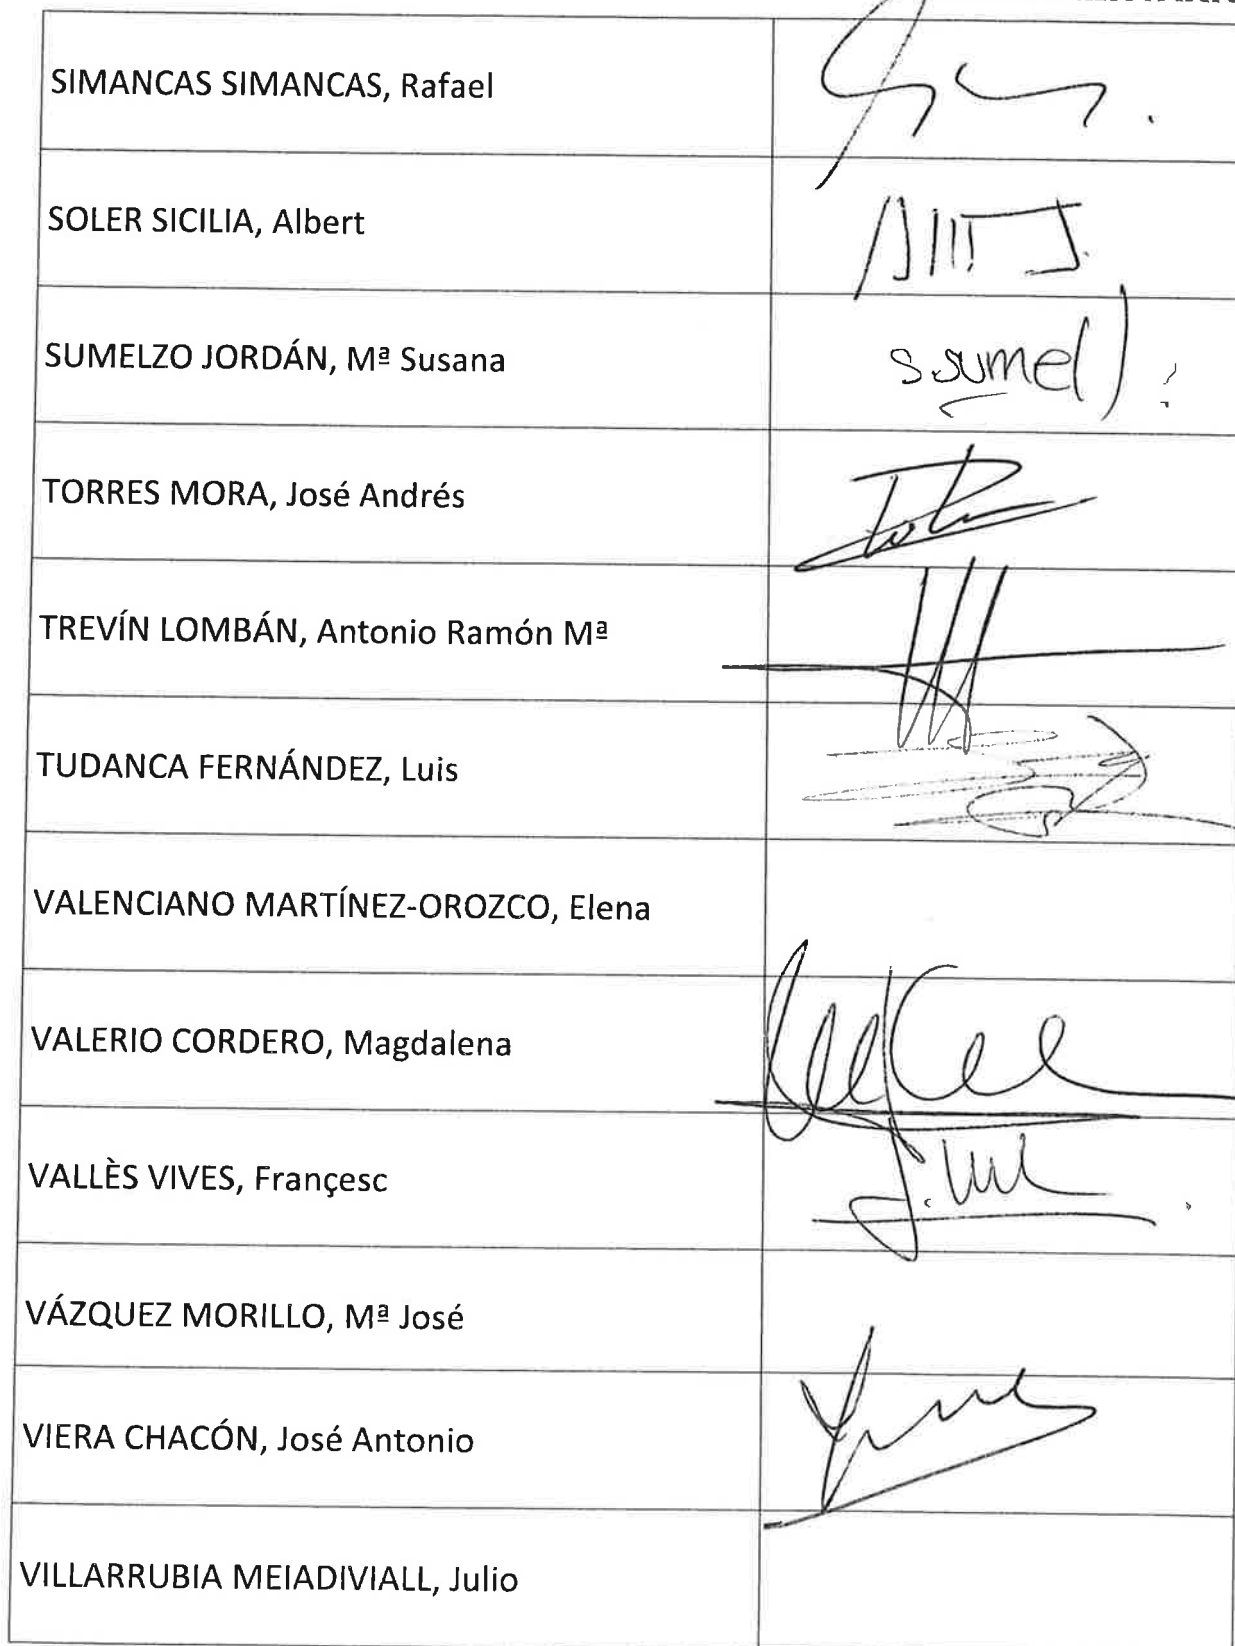 SIMANCAS SIMANCAS, Rafael
SOLER SICILIA, Albert
SUMELZO JORDÁN, Mª Susana
ssumel
TORRES MORA, José Andrés
TREVÍN LOMBÁN, Antonio Ramón Mª
TUDANCA FERNÁNDEZ, Luis
VALENCIANO MARTÍNEZ-OROZCO, Elena
VALERIO CORDERO, Magdalena
VALLÈS VIVES, Françesc
VÁZQUEZ MORILLO, Mª José
VIERA CHACÓN, José Antonio
VILLARRUBIA MEIADIVIALL, Julio